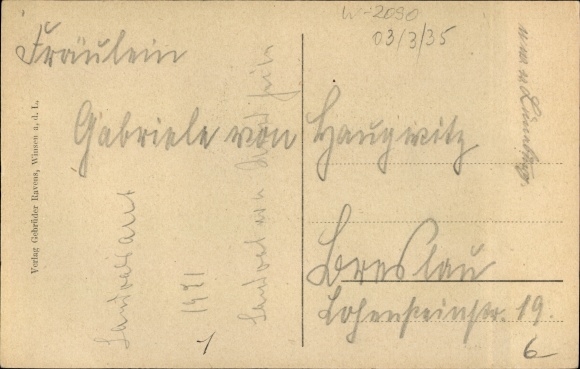 W-2090
03/3/35
Fräulein
Gabriele von Haugwitz
Breslau
Lohensteinstr. 19.
6
Verlag Gebrüder Ravens, Winsen a. d. L.
Landratsamt
1921
Landrat von
Lüneburg.